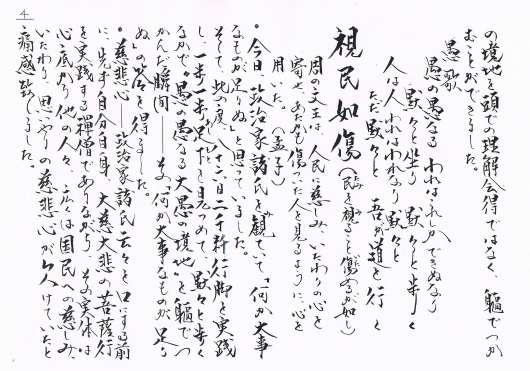 4
の境地を頭での理解会得ではなく、軀でつか
むことができました。
愚歌
愚の愚なる われはこれしかできぬなり
黙々と坐り 黙々と歩く
人は人 われはわれなり 黙々と
ただ黙々と 吾が道を行く
視民如傷(民を視ること傷るるが如し)
周の文王は、人民に慈しみ、いたわりの心を
寄せ、あたかも傷ついた人を見るように、心を
用いた。(孟子)
・今日、政治家諸氏を観ていて「何か大事
なものが足りぬ」と思っていました。
そして、此の度、八十二日二千粁行脚を実践
し、一歩一歩足下を見つめて、黙々と歩く
なかで"愚の愚なる大愚の境地"を軀でつ
かんだ瞬間——その何か大事なものが"足り
ぬ"の答を得ました。
・慈悲心——政治家諸氏云々と口にする前
に、先ず自分自身、大慈大悲の菩薩行
を実践する禅僧でありながら、その実体は
心底から他の人々、広くは国民への慈しみ、
いたわり、思いやりの慈悲心が欠けていたと
痛感致しました。